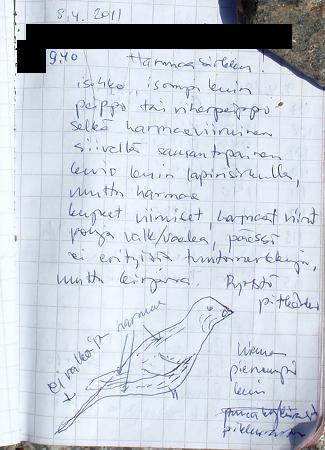 8.4.2011
9.40 Harmaasirkku!
isohko, isompi kuin
peippo tai viherpeippo
selkä harmaaviiruinen
siivellä samantapainen
kuvio kuin lapinsirkulla,
mutta harmaa
kupeet viiruiset, harmaat viirut
pohja valk/vaalea, päässä
ei erityisiä tuntomerkkejä,
mutta kirjava. Pyrstö
pitkähkö
harmaa
ei valkoista
Hieman
pienempi
kuin